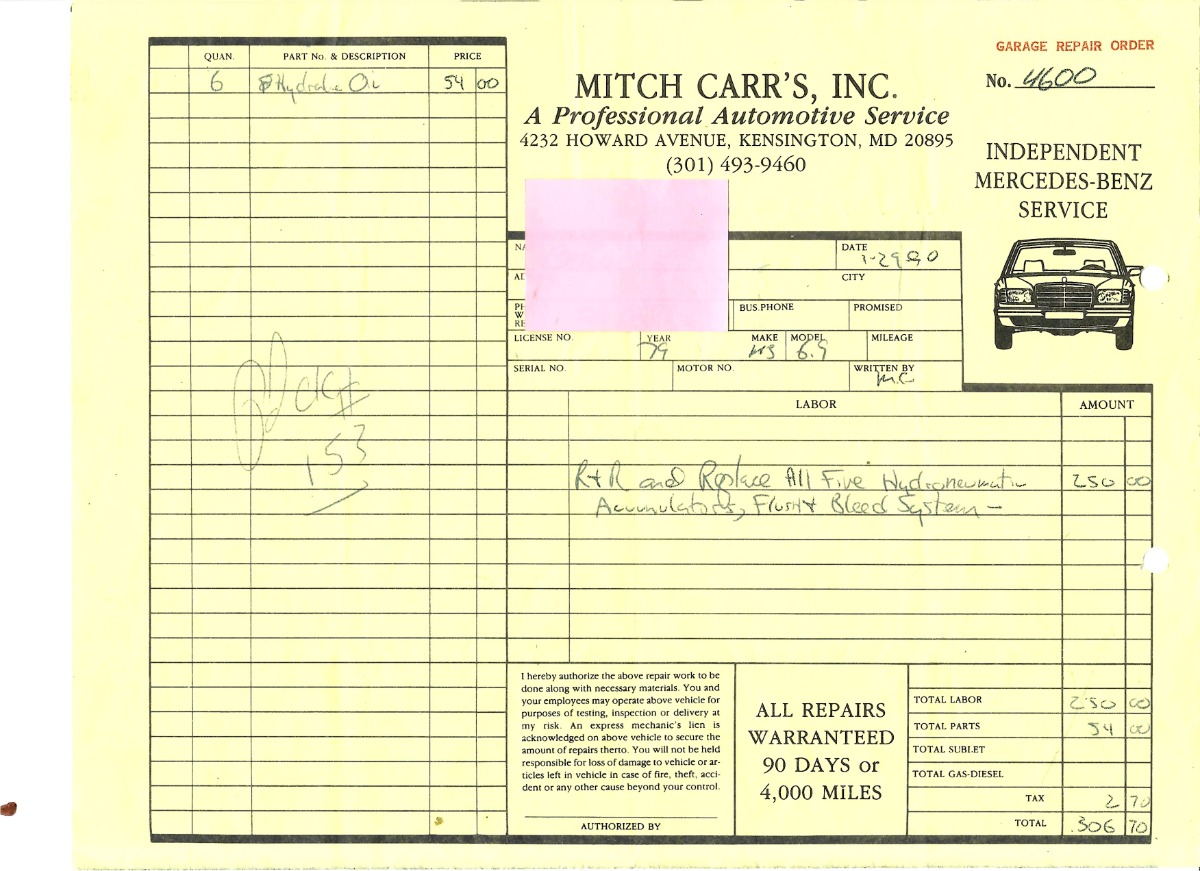 GARAGE REPAIR ORDER
No. 4600
MITCH CARR'S, INC.
A Professional Automotive Service
4232 HOWARD AVENUE, KENSINGTON, MD 20895
(301) 493-9460
INDEPENDENT
MERCEDES-BENZ
SERVICE
QUAN. PART No. & DESCRIPTION PRICE
6 Hydralic Oil 54 00
NA
DATE
AD
CITY
PH
W
RE
BUS.PHONE PROMISED
LICENSE NO. YEAR MAKE MODEL MILEAGE
79 MB 6.9
SERIAL NO. MOTOR NO. WRITTEN BY
M.C
LABOR AMOUNT
R+R and Replace All Five Hydropneumatic 250 00
Accumulators, Flush & Bleed System –
Pd CK#
153
I hereby authorize the above repair work to be
done along with necessary materials. You and
your employees may operate above vehicle for
purposes of testing, inspection or delivery at
my risk. An express mechanic's lien is
acknowledged on above vehicle to secure the
amount of repairs therto. You will not be held
responsible for loss of damage to vehicle or ar-
ticles left in vehicle in case of fire, theft, acci-
dent or any other cause beyond your control.
AUTHORIZED BY
ALL REPAIRS
WARRANTEED
90 DAYS or
4,000 MILES
TOTAL LABOR 250 00
TOTAL PARTS 54 00
TOTAL SUBLET
TOTAL GAS-DIESEL
TAX 2 70
TOTAL 306 70